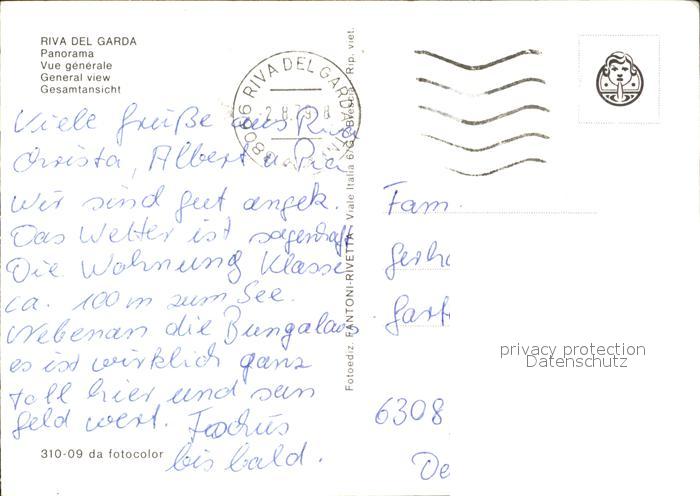 RIVA DEL GARDA
Panorama
Vue générale
General view
Gesamtansicht
RIVA DEL GARDA
Viele Grüße aus Riva
Christa, Albert u. Pia
Wir sind gut angek.
Das Wetter ist sagenhaft
Die Wohnung Klasse
ca. 100 m zum See.
Nebenan die Bungalows
es ist wirklich ganz
toll hier und sein
Geld wert. Tschüs
bis bald.
310-09 da fotocolor
Fotoediz. FANTONI-RIVETTA - Viale Italia 6/C Rip. viet.
Fam.
Gerh
Gart
6308
De
privacy protection
Datenschutz